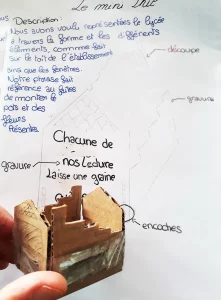 Le mini
Description:
Nous avons voulu représenter le lycée
à travers la forme et les différents
bâtiments, comme fait
sur le toit de l'établissement
ainsi que les fenêtres.
Notre phrase fait
référence au faites
de monter le
pots et des
fleurs
Présentes.
découpe
gravure
Chacune de
gravure
nos lecture
laisse une graine
encoches